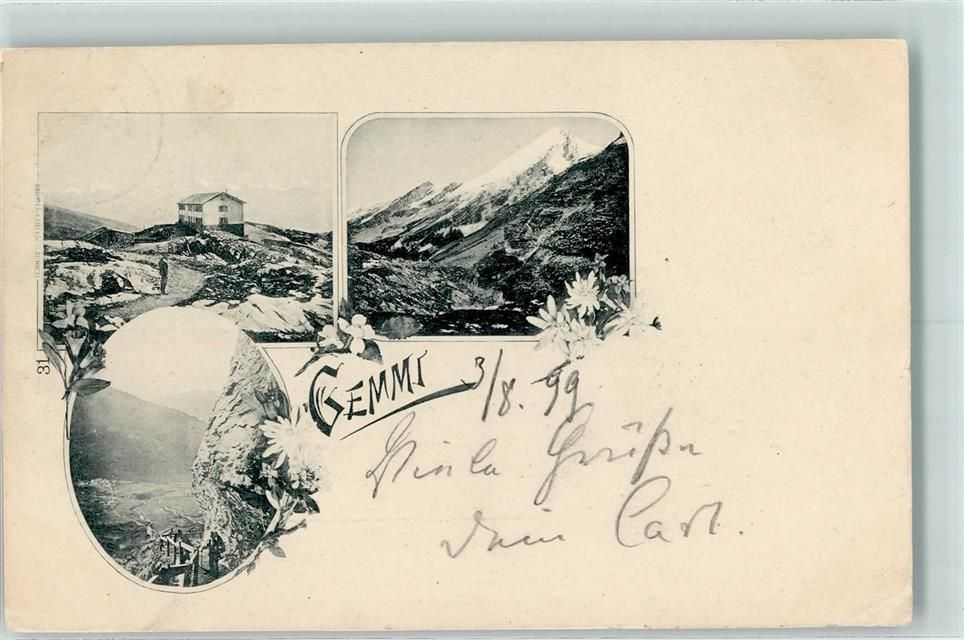 31
GEMMI
3/8. 99
Viele Grüße
Dein Carl.